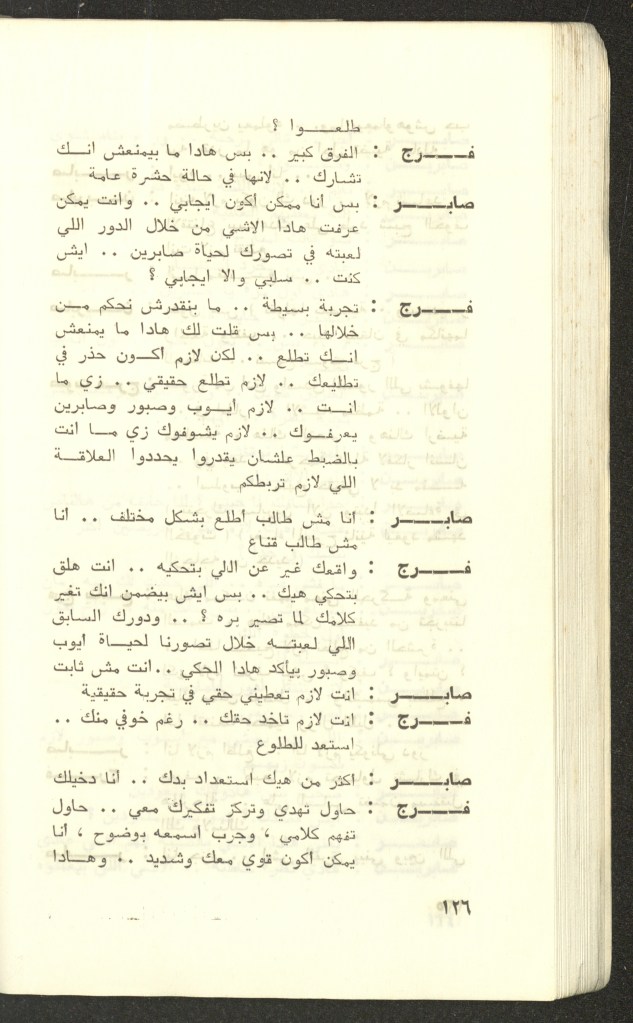 طلعـــوا ؟
فــــرج : الفرق كبير .. بس هادا ما بيمنعش انـك
تشارك .. لانها في حالة حشرة عامة
صابــــر : بس انا ممكن اكون ايجابي .. وانت يمكن
عرفت هادا الاشي من خلال الدور اللي
لعبته في تصورك لحياة صابرين .. ايش
كنت .. سلبي والا ايجابي ؟
فــــرج : تجربة بسيطة .. ما بنقدرش نحكم مــن
خلالها .. بس قلت لك هادا ما يمنعش
انــك تطلع .. لكن لازم اكــون حذر في
تطليعك .. لازم تطلع حقيقي .. زي ما
انــت .. لازم ايــوب وصبور وصابرين
يعرفــوك .. لازم يشوفوك زي مــا انت
بالضبط علشان يقدروا يحددوا العلاقــة
اللي لازم تربطكم
صابــــر : انا مش طالب اطلع بشكل مختلف .. انا
مش طالب قناع
فــــرج : واقعك غير عن اللي بتحكيه .. انت هلق
بتحكي هيك .. بس ايش بيضمن انك تغير
كلامك لما تصير بره ؟ .. ودورك السابق
اللي لعبتــه خلال تصورنا لحيــاة ايوب
وصبور بيأكد هادا الحكي ..انت مش ثابت
صابــــر : انت لازم تعطيني حقي في تجربة حقيقية
فــــرج : انت لازم تاخد حقك .. رغم خوفي منك ..
استعد للطلوع
صابــــر : اكثر من هيك استعداد بدك .. انا دخيلك
فــــرج : حاول تهدي وتركز تفكيرك معي .. حاول
تفهم كلامي ، وجرب اسمعه بوضوح ، انا
يمكن اكون قوي معك وشديد .. وهــادا
١٢٦